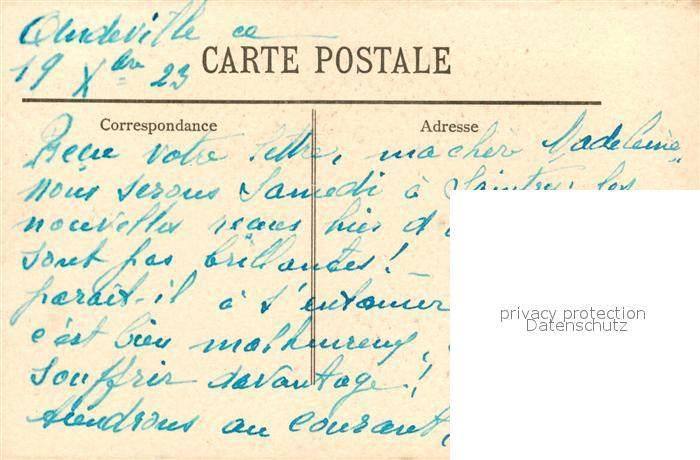 Andeville ce
19 Xbre 23
CARTE POSTALE
Correspondance
Adresse
Reçu votre lettre, ma chère Madeleine,
nous serons Samedi à Saintry; les
nouvelles reçues hier d
sont pas brillantes! –
paraît-il à s'entamer
c'est bien malheureux,
souffrir davantage!
tiendrons au courant,
privacy protection
Datenschutz